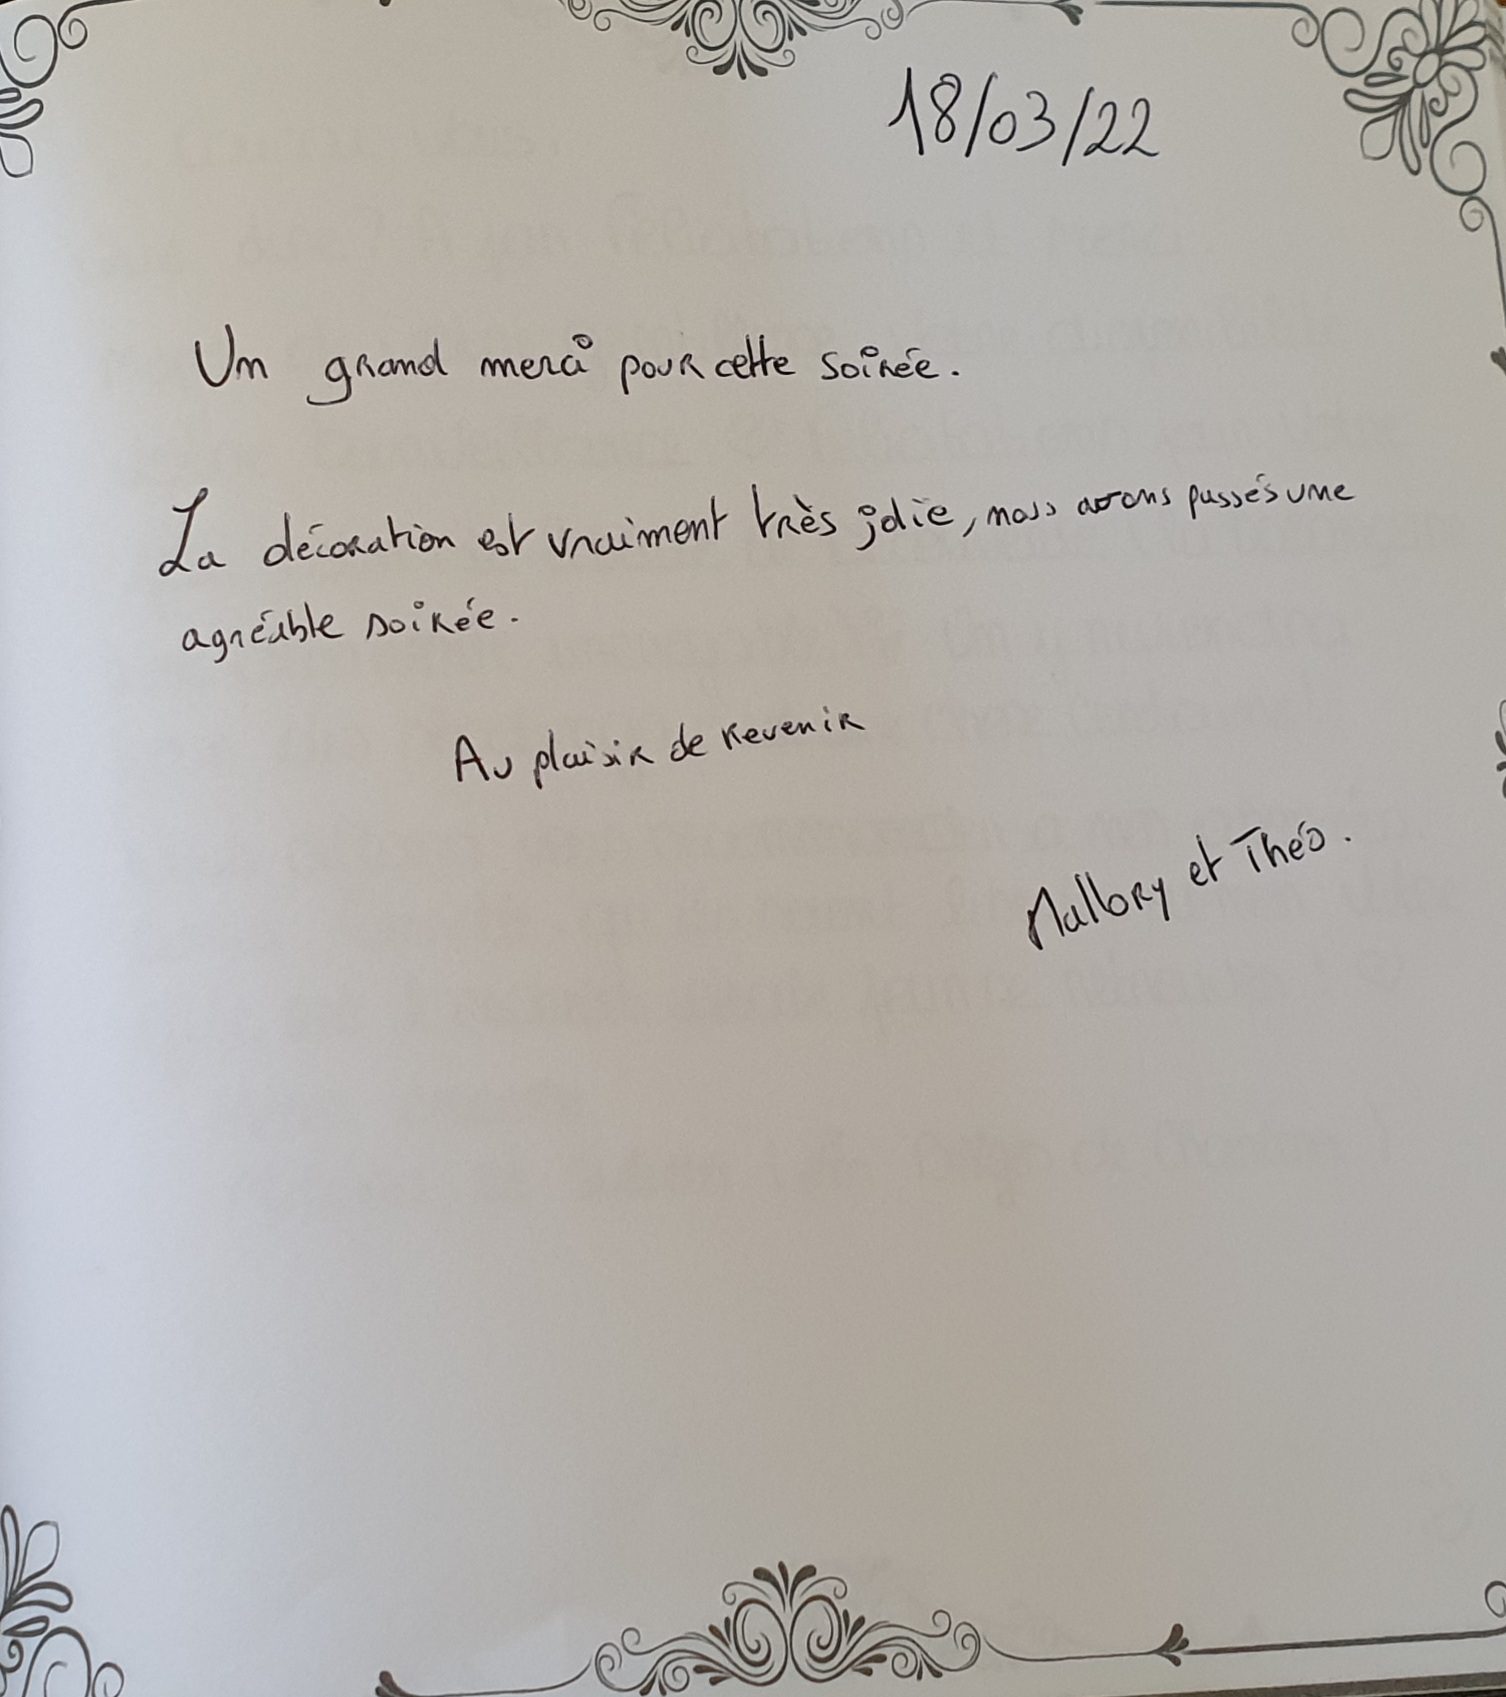 18/03/22
Un grand merci pour cette soirée.
La décoration est vraiment très jolie, nous avons passés une
agréable soirée.
Au plaisir de revenir
Mallory et Théo.